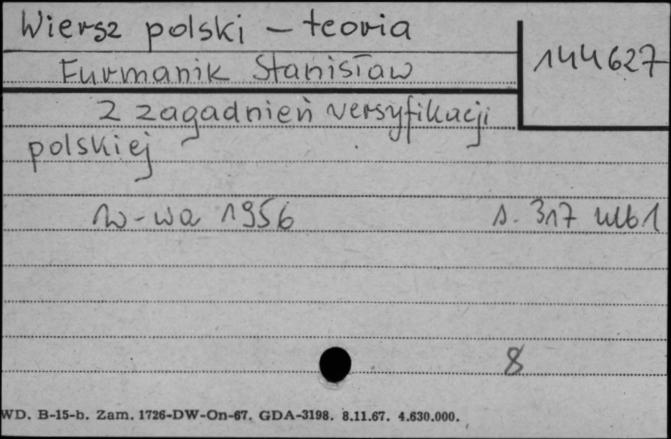 Wiersz polski - teoria
Furmanik Stanisław
144627
Z zagadnień versyfikacji
polskiej
W-wa 1956 s. 317 nlb 1
8
WD. B-15-b. Zam. 1726-DW-On-67. GDA-3198. 8.11.67. 4.630.000.